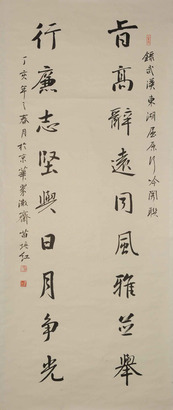 旨高辭遠同風雅並舉
錄武漢東湖屈原行吟閣聯
行廉志堅與日月争光
丁亥年之春月於京華
苗培红